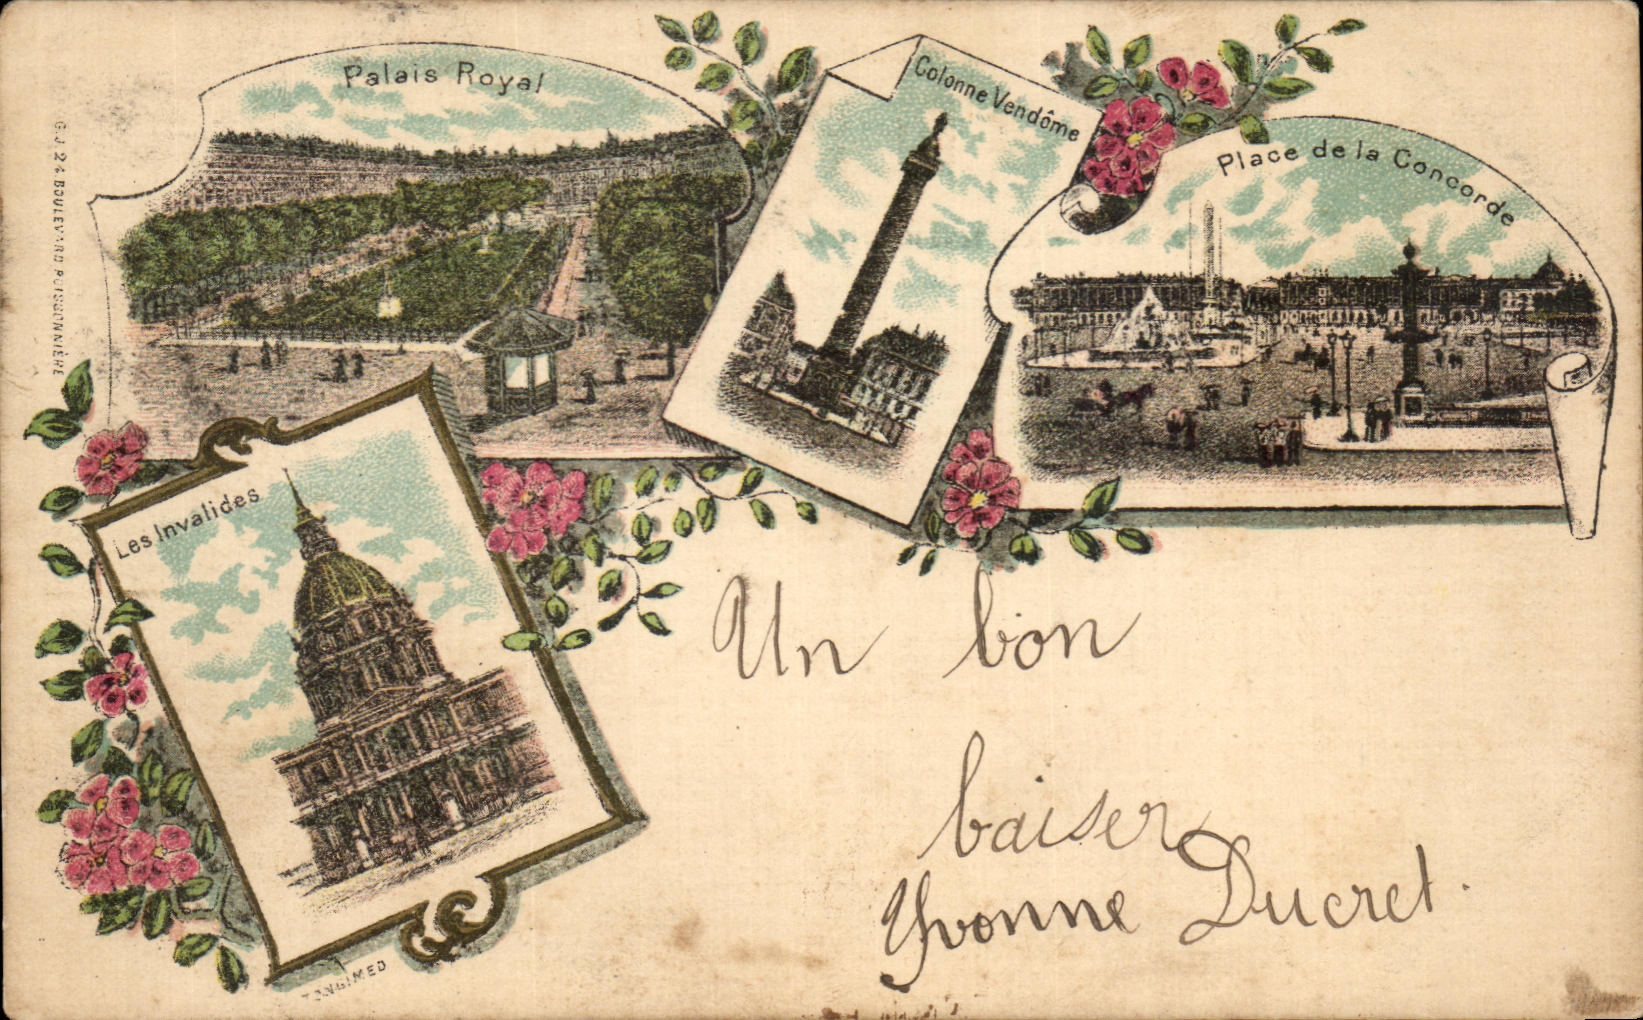 Palais Royal
Colonne Vendôme
Place de la Concorde
G. J. 24 BOULEVARD POISSONNIÈRE
Les Invalides
Un bon
baiser
Yvonne Ducret.